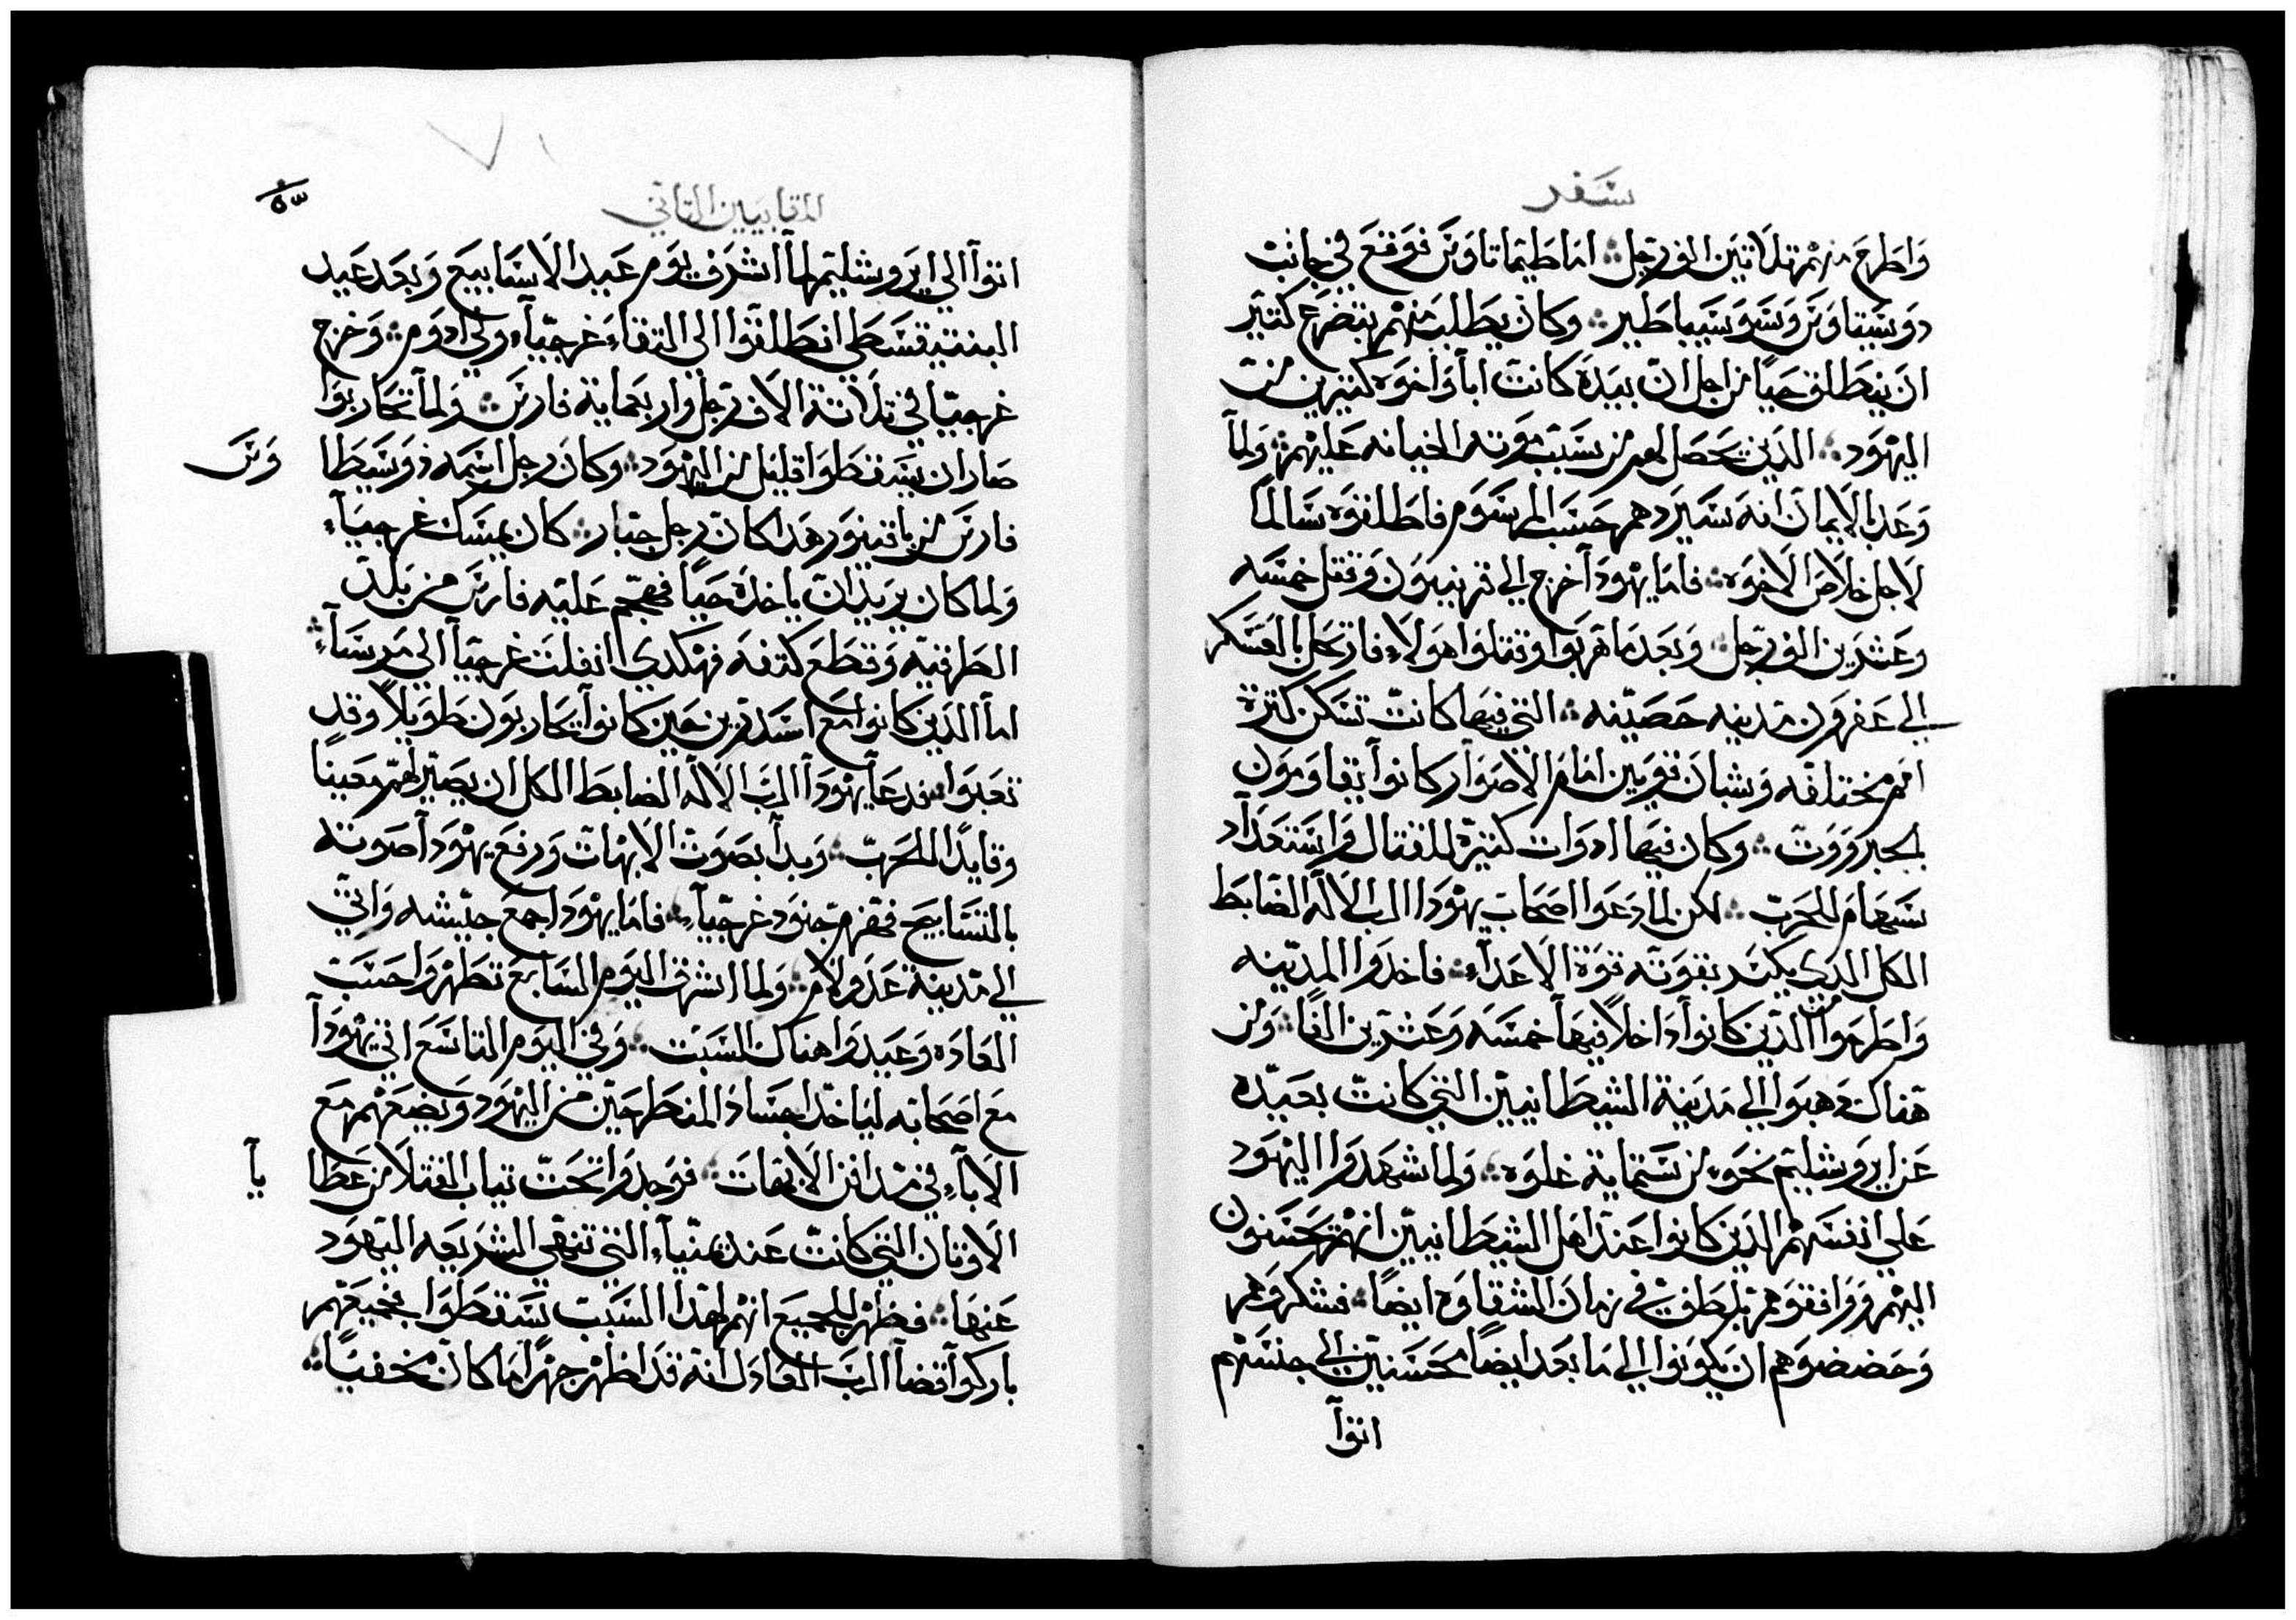 سفر
واطرح منهم تلاتين الف رجل ܀ اما طيماتاوس فوقع في جانب
دوسيتاوس وسوسيباطير ܀ وكان يطلب منهم بتضرع كتير
ان ينطلق حيا من اجل ان بيده كانت ابا واخوه كتيرين من
اليهود ܀ الذين يحصل لهم من سبب موته الخيانه عليهم ܀ ولما
وعد بالايمان انه سيردهم حسب المرسوم فاطلقوه سالما
لاجل خلاص الاخوه ܀ فاما يهودا خرج الي قرنيون وقتل خمسه
وعشرين الف رجل ܀ وبعد ما هربوا وقتلوا هولاء فارتحل بالعسكر
الي عفرون مدينه حصينه ܀ التي فيها كانت تسكن كترة
امم مختلفه وشبان قويين امام الاصوار كانوا يقاومون
بجبروروت ܀ وكان فيها ادوات كتيرة للقتال واستعداد
سهام للحرب ܀ لكن لما دعوا اصحاب يهودا الرب الاله الضابط
الكل الدي يكسر بقوته قوة الاعداء ܀ فاخدوا المدينه
واطرحوا من الذين كانوا داخلا فيها خمسه وعشرين الفا ܀ ومن
هناك دهبوا الي مدينة الشيطانيين التي كانت بعيده
عن ايروشليم نحو من ستماية غلوه ܀ ولما شهدوا اليهود
علي انفسهم الذين كانوا عند اهل الشيطانيين انهم يحسنون
اليهم ووافقوهم بلطف في زمان الشقاوه ايضا ܀ فشكروهم
وحضضوهم ان يكونوا الي ما بعد ايضا محسنين الي جنسهم
اتوا
المقابيين التاني
اتوا الي ايروشليم لما اشرف يوم عيد الاسابيع وبعد عيد
البنتيقسطي انطلقوا الي التقاء غرجيا والي ادوم ܀ وخرج
غرجيا في تلاتة الاف رجل واربعماية فارس ܀ ولما تحاربوا
صار ان يسقطوا قليل من اليهود ܀ وكان رجل اسمه دوسيطا وس
فارس من باقينور هدا كان رجل جبار ܀ كان يمسك غرجياء
ولما كان يريد ان ياخده حيا فهجم عليه فارس من بلد
الطراقيه وقطع كتفه فهكدي انفلت غرجيا الي مرساء ܀
اما الذين كانوا مع اسدرين حين كانوا يتحاربون طويلا وقد
تعبوا فدعا يهودا الرب الاله الضابط الكل ان يصير لهم معينا
وقايدا للحرب ܀ وبدا بصوت الابهات ورفع يهودا صوته
بالتسابيح فهزم جنود غرجيا ܀ فاما يهودا جمع جيشه واتي
الي مدينة عدولام ܀ ولما اشرق اليوم السابع تطهروا حسب
العاده وعيدوا هناك السبت ܀ وفي اليوم التاسع اتي يهودا
مع اصحابه لياخد اجساد المنطرحين من اليهود ويضعهم مع
الاباء في مدافن الابهات ܀ فوجدوا تحت تياب القتلا من عطا يا
الاوتان التي كانت عند يمنياء التي تنهي الشريعه اليهود
عنها ܀ فظهر للجميع انهم لهدا السبب سقطوا جميعهم
باركوا قضا الرب العادل انه قد اظهر جهرا ما كان مخفيا ܀